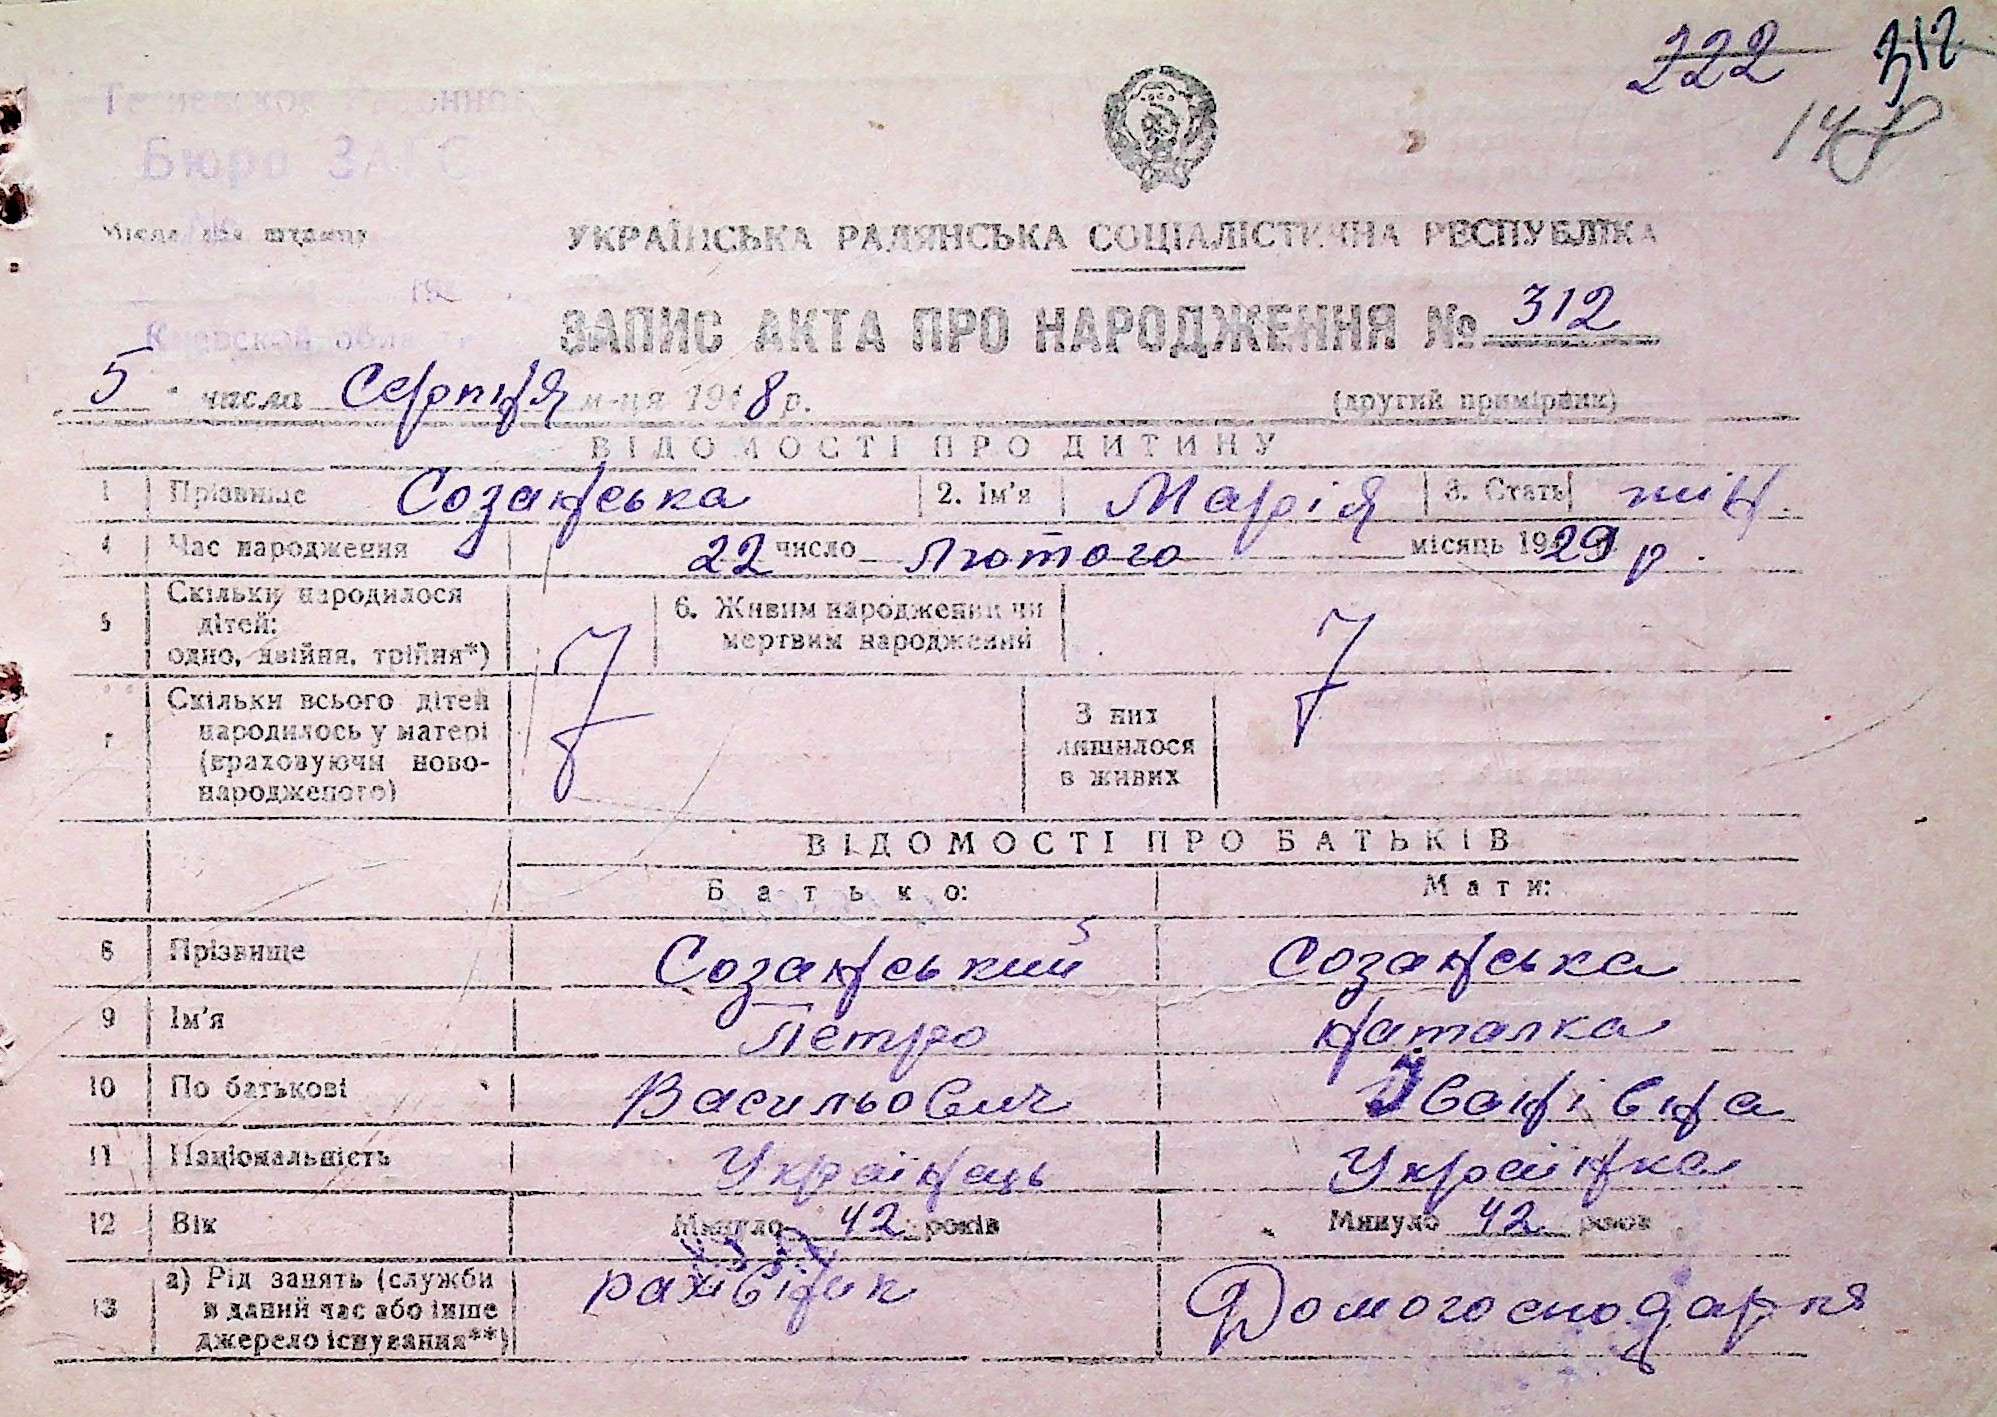 222 312
148
Бюро ЗАГС
Місце для штампу
УКРАЇНСЬКА РАДЯНСЬКА СОЦІАЛІСТИЧНА РЕСПУБЛІКА
ЗАПИС АКТА ПРО НАРОДЖЕННЯ № 312
Киевской
5 " числа Серпня м-ця 1948 р. (другий примірник)
ВІДОМОСТІ ПРО ДИТИНУ
1 Прізвище Созанська 2. Ім'я Марія 3. Стать жін.
4 Час народження 22 число лютого місяць 1929 р.
5 Скільки народилося дітей: одно, двійня, трійня*) 6. Живим народжений чи мертвим народжений
7 Скільки всього дітей народилось у матері (враховуючи новонародженого) З них лишилося в живих
ВІДОМОСТІ ПРО БАТЬКІВ
Батько: Мати:
8 Прізвище Созанський Созанська
9 Ім'я Петро Наталка
10 По батькові Васильович Іванівна
11 Національність Українець Українка
12 Вік Минуло 42 років Минуло 42 років
13 а) Рід занять (служби в даний час або інше джерело існування**) рахівник Домогосподарка